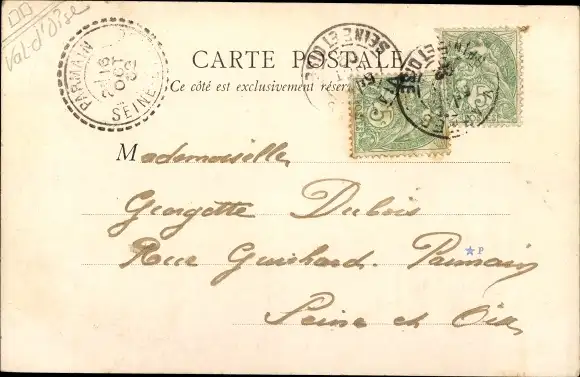 Val-d'Oise
PARMAIN
16
OCT
02
SEINE
CARTE POSTALE
Ce côté est exclusivement réservé
SEINE ET OISE
5
5
Mademoiselle
Georgette Dubois
Rue Guichard. Parmain
Seine et Oise
P